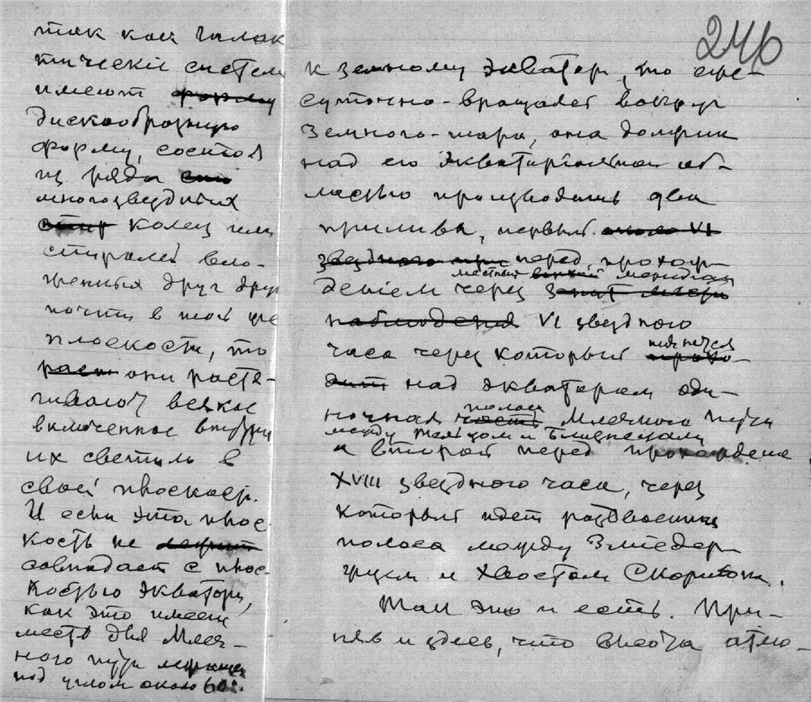 так как галак
тическія систем
имеют форму
дискообразную
форму, состоя
из ряда
многозвездных
колец или
спиралей вло-
женных друг друг
почти в той же
плоскости, то
они растя-
гивают всякое
включенное внутри
их светило в
своей плоскост.
И если эта плос
кость не лежит
совпадает с плос-
костью экватора,
как это имеет
место для Млеч-
ного пути
под углом около 60°.
246
к земному экватору, то еже-
суточно-вращаясь вокруг
Земного-шара, она должна
над его экваториальной об-
ластью производить два
прилива, первый около VI
звездного при перед прохож-
местный меридиан
дением через зенит места
наблюдения VI звездного
часа через который тянется
прохо-
дит над экватором оди-
полоса
ночная часть Млечного пути
между Тельцом и Близнецами
а второй перед прохождение
XVIII звездного часа, через
который идет раздвоенная
полоса между Змиедер-
жцем и Хвостом Скорпиона.
Так это и есть. При-
няв и здесь, что высота атмо-